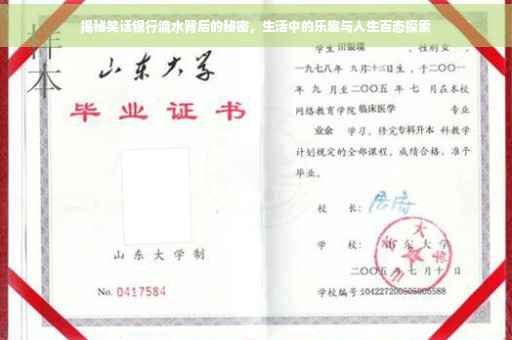 揭秘笑话银行流水背后的秘密，生活中的乐趣与人生百态探索
样本
山东大学
毕业证书
山东大学制
No. 0417584
学生 田银瑞 ，性别 女 ，
一九七八年 九月十三日生，于二○○一
年 九 月至二○○五 年 七 月在本校
网络教育学院 临床医学 专业
业余 学习，修完专科升本 科教学
计划规定的全部课程，成绩合格，准予
毕业。
校 长：
学 校：山东大学
二○○五 年 七 月十 日
学校编号:104227200505005588